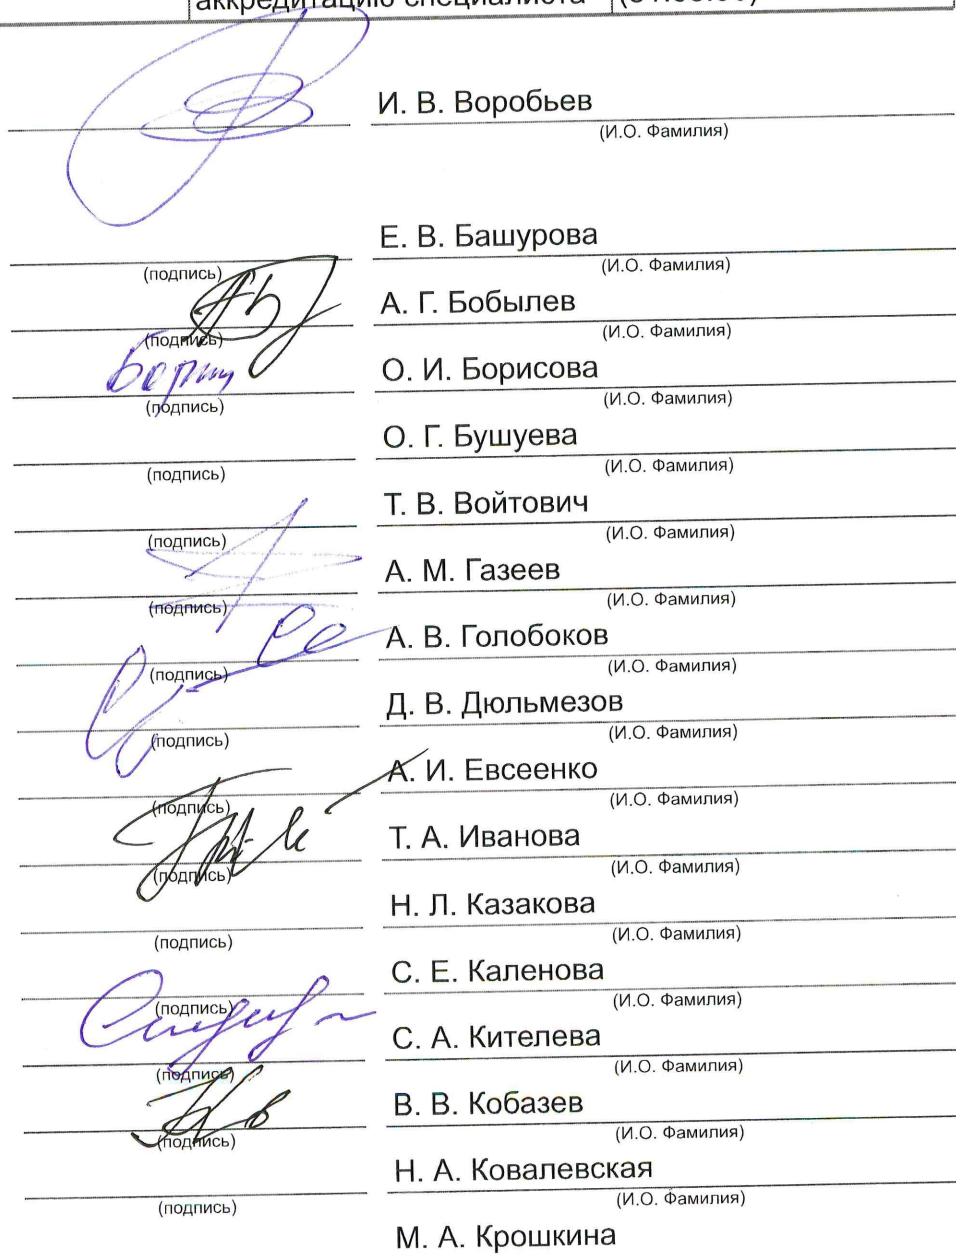 аккредитацию специалиста
И. В. Воробьев
(И.О. Фамилия)
Е. В. Башурова
(подпись) (И.О. Фамилия)
А. Г. Бобылев
(подпись) (И.О. Фамилия)
О. И. Борисова
(подпись) (И.О. Фамилия)
О. Г. Бушуева
(подпись) (И.О. Фамилия)
Т. В. Войтович
(подпись) (И.О. Фамилия)
А. М. Газеев
(подпись) (И.О. Фамилия)
А. В. Голобоков
(подпись) (И.О. Фамилия)
Д. В. Дюльмезов
(подпись) (И.О. Фамилия)
А. И. Евсеенко
(подпись) (И.О. Фамилия)
Т. А. Иванова
(подпись) (И.О. Фамилия)
Н. Л. Казакова
(подпись) (И.О. Фамилия)
С. Е. Каленова
(подпись) (И.О. Фамилия)
С. А. Кителева
(подпись) (И.О. Фамилия)
В. В. Кобазев
(подпись) (И.О. Фамилия)
Н. А. Ковалевская
(подпись) (И.О. Фамилия)
М. А. Крошкина